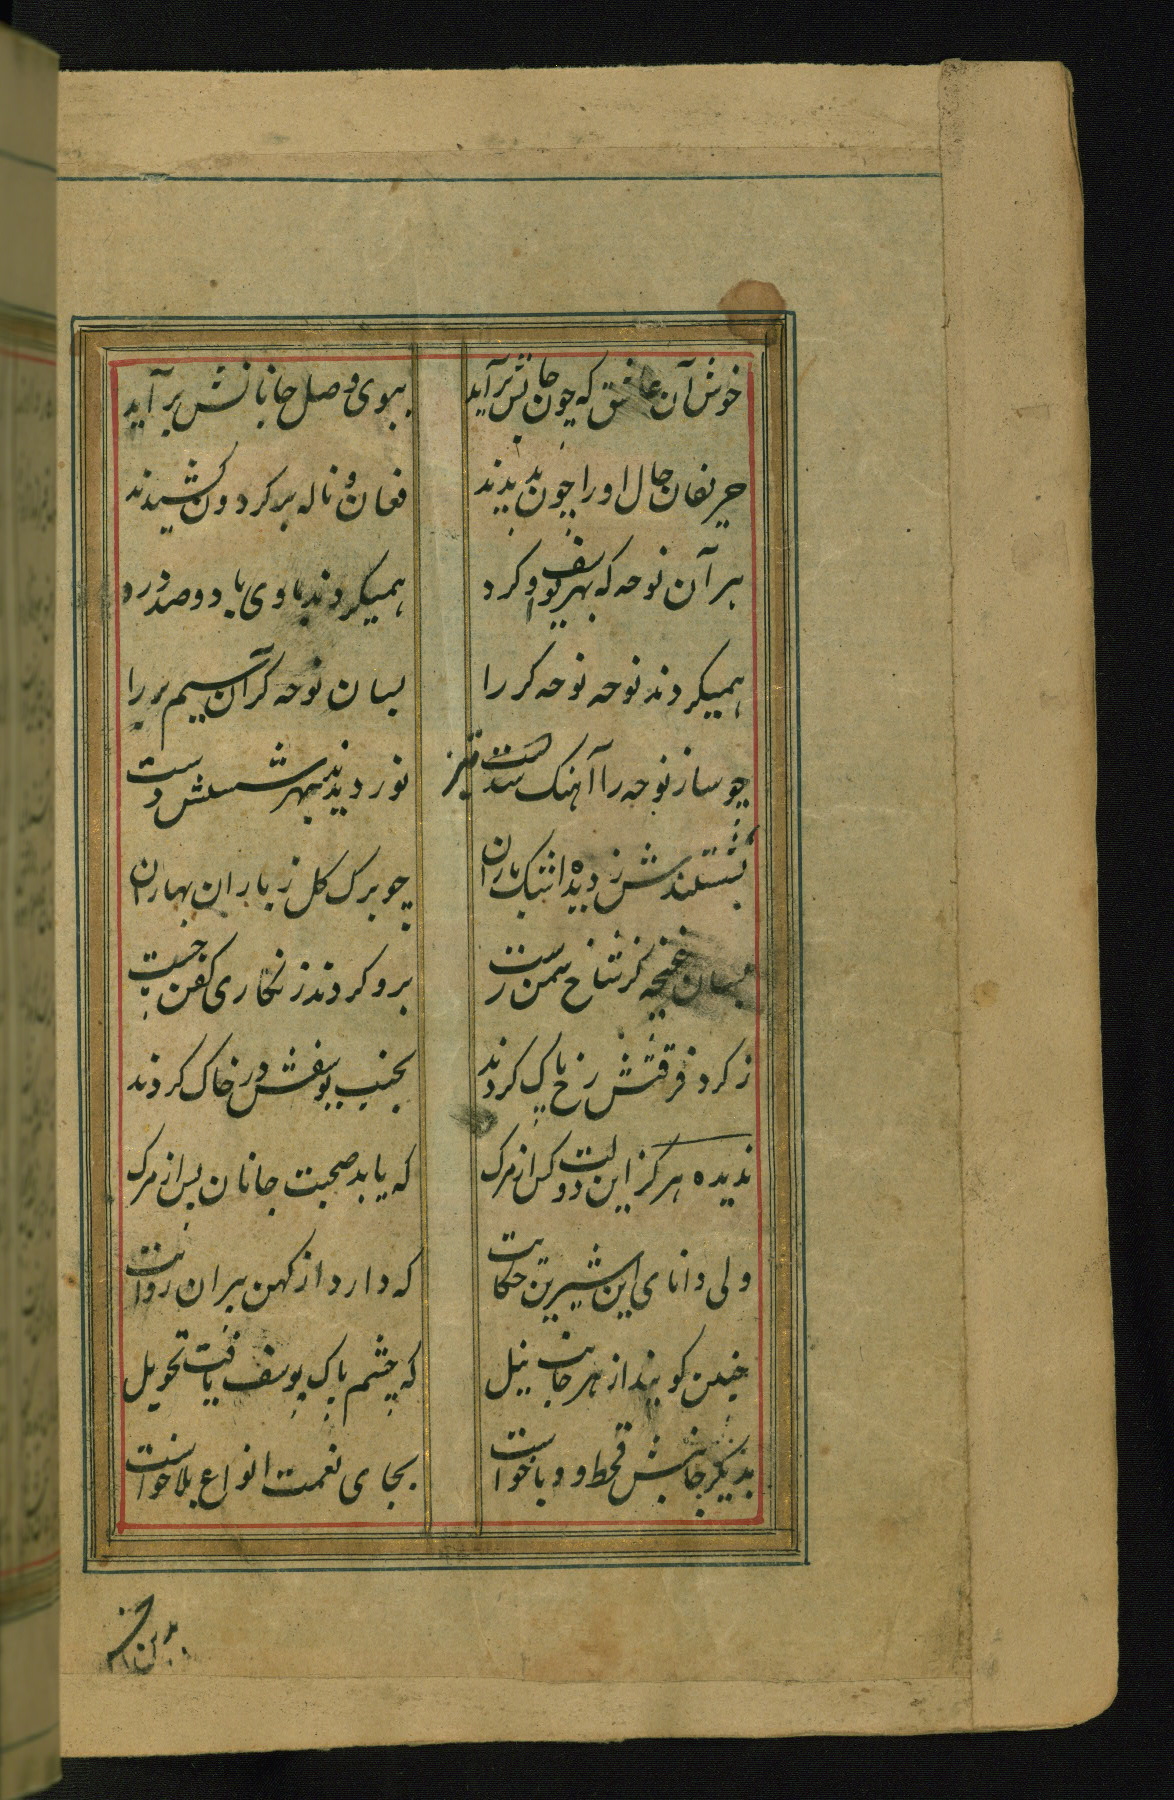 خوش آن عاشق که چون جانش برآید ببوی وصل جانانش برآید
حریفان حال او را چون بدیدند فغان و ناله بر کردون کشیدند
هر آن نوحه که بهر یوسف او کرد همیکردند با وی با دو صد درد
همیکردند نوحه نوحه کر را بسان نوحه کر آن سیم بر را
چو ساز نوحه را آهنک شد سست نوردیدند بهر شستنش دست
بشستندش ز دیده اشک باران چو برک کل ز باران بهاران
بسان غنچه کز شاخ سمن رست برو کردند زنکاری کفن چست
ز کرد فرقتش رخ پاک کردند بجنب یوسفش در خاک کردند
ندیده هرکز این دولت کس از مرک که یابد صحبت جانان پس از مرک
ولی دانای این شیرین حکایت که دارد از کهن پیران روایت
چنین کویند از هر جانب نیل که جسم پاک یوسف یافت تحویل
بدیکر جانبش قحط و وبا خواست بجای نعمت انواع بلا خواست
برین آخر